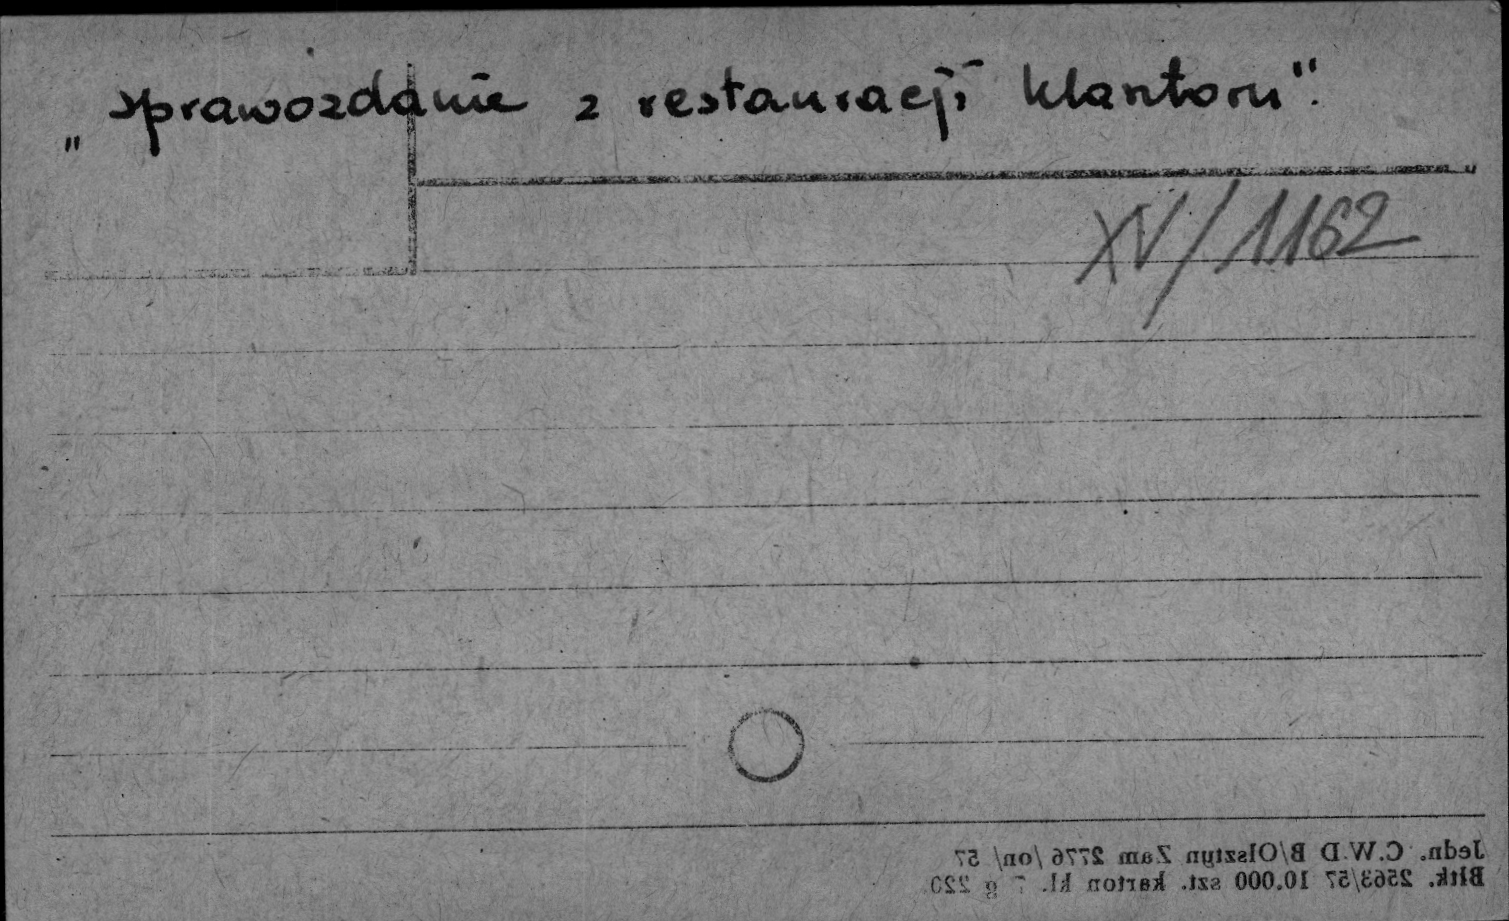 „sprawozdanie z restauracji klasztoru".
XV/1162
Jedn. C.W.D B/Olsztyn Zam 2776 /on/ 57
Bltk. 2563/57 10.000 szt. karton kl. g 220